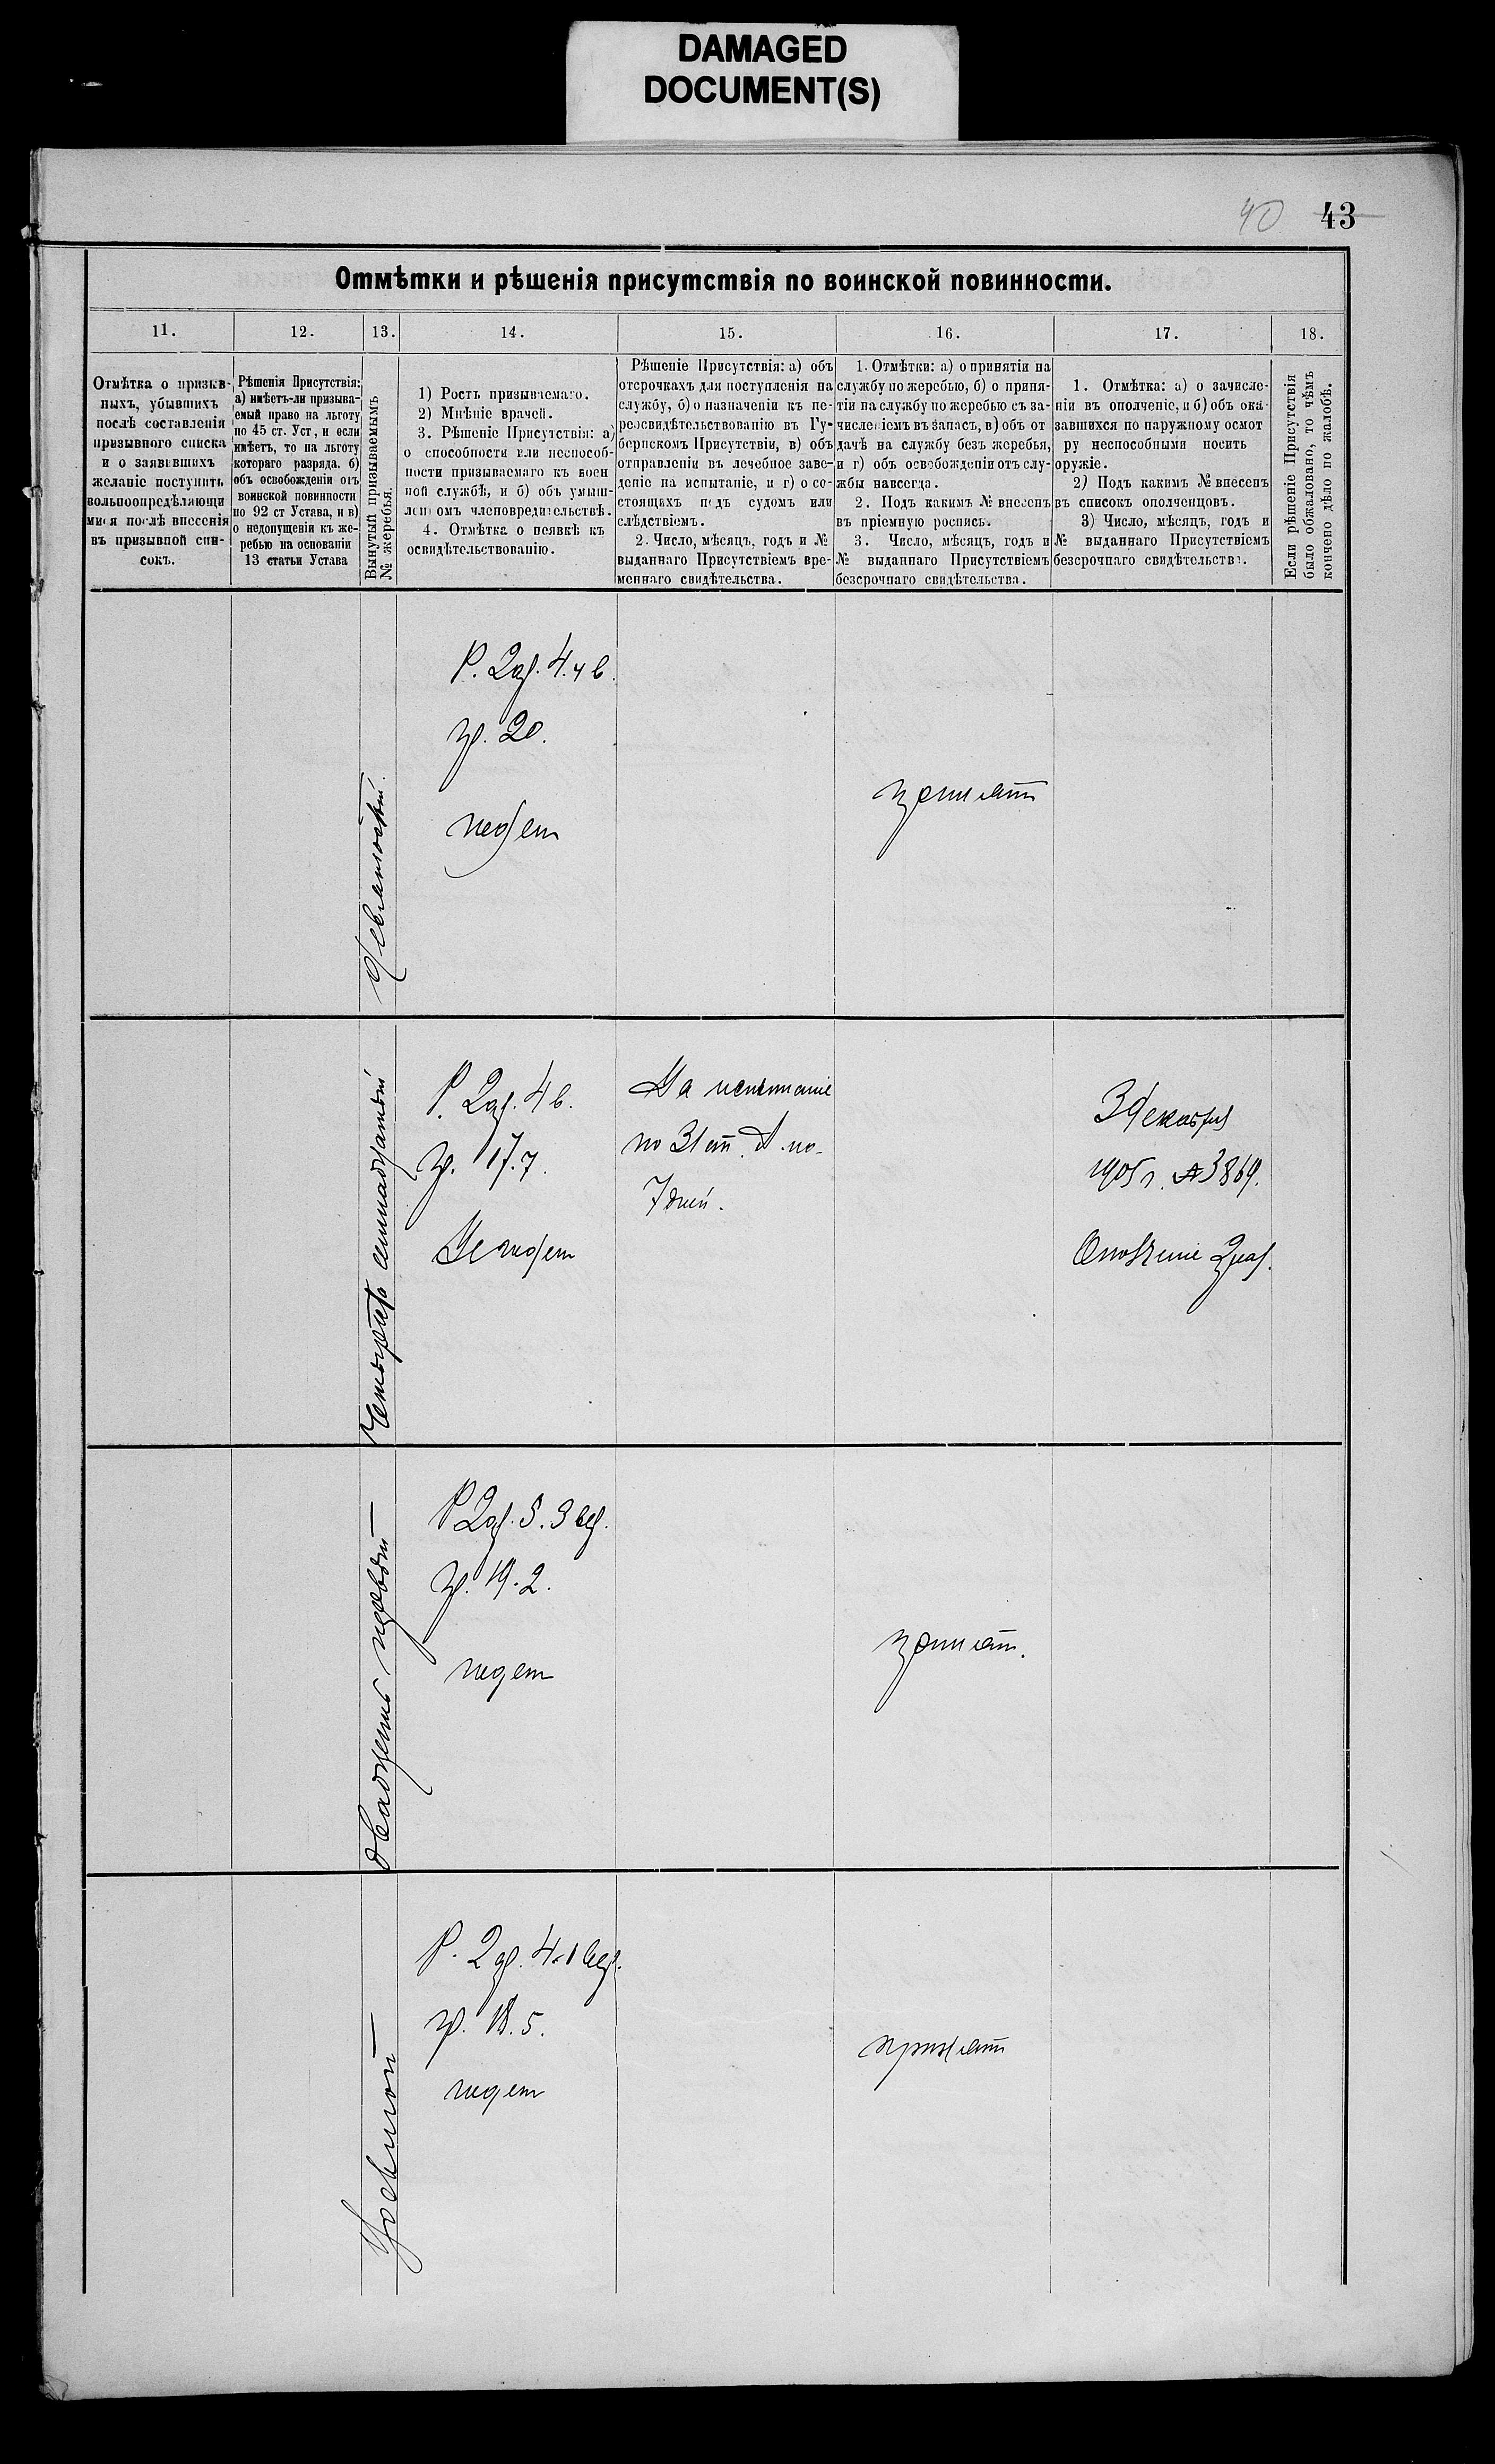 DAMAGED
DOCUMENT(S)
40 43
Отмѣтки и рѣшенія присутствія по воинской повинности.
11.
12.
13.
14.
15.
16.
17.
18.
Отмѣтка о призыв-
ныхъ, убывшихъ
послѣ составленія
призывного списка
и о заявившихъ
желаніе поступить
вольноопредѣляющи
мися послѣ внесенія
въ призывной спи-
сокъ.
Рѣшенія Присутствія:
а) имѣетъ-ли призыва-
емый право на льготу
по 45 ст. Уст, и если
имѣетъ, то на льготу
котораго разряда. б)
объ освобожденіи отъ
воинской повинности
по 92 ст Устава, и в)
о недопущеніи къ же-
ребью на основаніи
13 статьи Устава
Вынутый призываемымъ
№ жеребья.
1) Ростъ призываемаго.
2) Мнѣніе врачей.
3. Рѣшеніе Присутствія: а)
о способности или неспособ-
ности призываемаго къ воен
ной службѣ, и б) объ умыш-
леномъ членовредительствѣ.
4. Отмѣтка о неявкѣ къ
освидѣтельствованію.
Рѣшеніе Присутствія: а) объ
отсрочкахъ для поступленія на
службу, б) о назначеніи къ пе-
реосвидѣтельствованію въ Гу-
бернскомъ Присутствіи, в) объ
отправленіи въ лечебное заве-
деніе на испытаніе, и г) о со-
стоящихъ подъ судомъ или
слѣдствіемъ.
2. Число, мѣсяцъ, годъ и №
выданнаго Присутствіемъ вре-
меннаго свидѣтельства.
1. Отмѣтки: а) о принятіи на
службу по жеребью, б) о приня-
тіи на службу по жеребью съ за-
численіемъ въ запасъ, в) объ от
дачѣ на службу безъ жеребья,
и г) объ освобожденіи отъ слу-
жбы навсегда.
2. Подъ какимъ № внесенъ
въ пріемную роспись.
3. Число, мѣсяцъ, годъ и
№ выданнаго Присутствіемъ
безсрочнаго свидѣтельства.
1. Отмѣтка: а) о зачисле-
ніи въ ополченіе, и б) объ ока-
завшихся по наружному осмот
ру неспособными носить
оружіе.
2) Подъ какимъ № внесенъ
въ списокъ ополченцовъ.
3) Число, мѣсяцъ, годъ и
№ выданнаго Присутствіемъ
безсрочнаго свидѣтельства.
Если рѣшеніе Присутствія
было обжаловано, то чѣмъ
кончено дѣло по жалобѣ.
Р. 2 ар. 4. ч в.
гр. 20.
годен
принят
Четыреста семнадцатый
Р. 2 ар. 4 в.
гр. 17.7.
Не годен
На испытаніе
по 31 ст.
7 дней.
3 Декабря
1905 г. № 3869.
Ополченіе 2 раз.
двадцать первый
Р 2 ар. 5. 3 вер.
гр. 19.2.
годен
принят.
Р. 2 ар. 4.1 вер.
гр. 18.5.
годен
принят